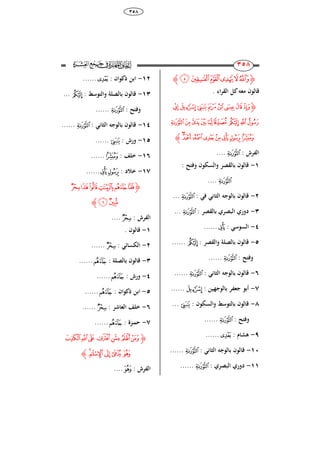 ٣٥٨
﴿ وَٱللَّهُ لَا يَهۡدِى ٱلۡقَوۡمَ ٱلۡفَٰسِقِينَ ۝٥ ﴾
قالون معه كل القراء .
﴿ وَإِذۡ قَالَ عِيسَى ٱبۡنُ مَرۡيَمَ يَٰبَنِىٓ إِسۡرَٰٓءِيلَ إِنِّى رَسُولُ ٱللَّهِ إِلَيۡكُم مُّصَدِّقٗا لِّمَا بَيۡنَ يَدَىَّ مِنَ ٱلتَّوۡرَىٰةِ وَمُبَشِّرَۢا بِرَسُولٖ يَأۡتِى مِنۢ بَعۡدِى ٱسۡمُهُۥٓ أَحۡمَدُ ﴾
الفرش : ٱلتَّوۡرَىٰةِ ....
١- قالون بالقصر والسكون وفتح :
ٱلتَّوۡرَىٰةِ ....
٢- قالون بالوجه الثاني في : ٱلتَّوۡرَىٰةِ ...
٣- دوري البصري بالقصر : ٱلتَّوۡرَىٰةِ ...
٤- السوسي : يَاتِى ......
٥- قالون بالصلة والقصر : إِلَيۡكُم ......
وفتح : ٱلتَّوۡرَىٰةِ ......
٦- قالون بالوجه الثاني : ٱلتَّوۡرَىٰةِ ......
٧- أبو جعفر بالوجهين : إِسۡرَٰٓءِيلَ ......
٨- قالون بالتوسط والسكون : يَٰبَنِىٓ ...
وفتح : ٱلتَّوۡرَىٰةِ ......
٩- هشام : بَعۡدِى ......
١٠- قالون بالوجه الثاني : ٱلتَّوۡرَىٰةِ ......
١١- دوري البصري : ٱلتَّوۡرَىٰةِ ......
١٢- ابن ذكوان : بَعۡدِى ......
١٣- قالون بالصلة والتوسط : إِلَيۡكُم ...
وفتح : ٱلتَّوۡرَىٰةِ ......
١٤- قالون بالوجه الثاني : ٱلتَّوۡرَىٰةِ ......
١٥- ورش : يَٰبَنِىٓ ......
١٦- خلف : وَمُبَشِّرَۢا ......
١٧- خلاد : بِرَسُولٖ يَأۡتِى ......
﴿ فَلَمَّا جَآءَهُم بِٱلۡبَيِّنَٰتِ قَالُواْ هَٰذَا سِحۡرٞ مُّبِينٞ ۝٦ ﴾
الفرش : سِحۡرٞ ....
١- قالون .
٢- الكسائي : سِحۡرٞ ......
٣- قالون بالصلة : جَآءَهُم ......
٤- ورش : جَآءَهُم ......
٥- ابن ذكوان : جَآءَهُم ......
٦- خلف العاشر : سِحۡرٞ ......
٧- حمزة : جَآءَهُم ......
﴿ وَمَنۡ أَظۡلَمُ مِمَّنِ ٱفۡتَرَىٰ عَلَى ٱللَّهِ ٱلۡكَذِبَ وَهُوَ يُدۡعَىٰٓ إِلَى ٱلۡإِسۡلَٰمِ ﴾
الفرش : وَهُوَ ....